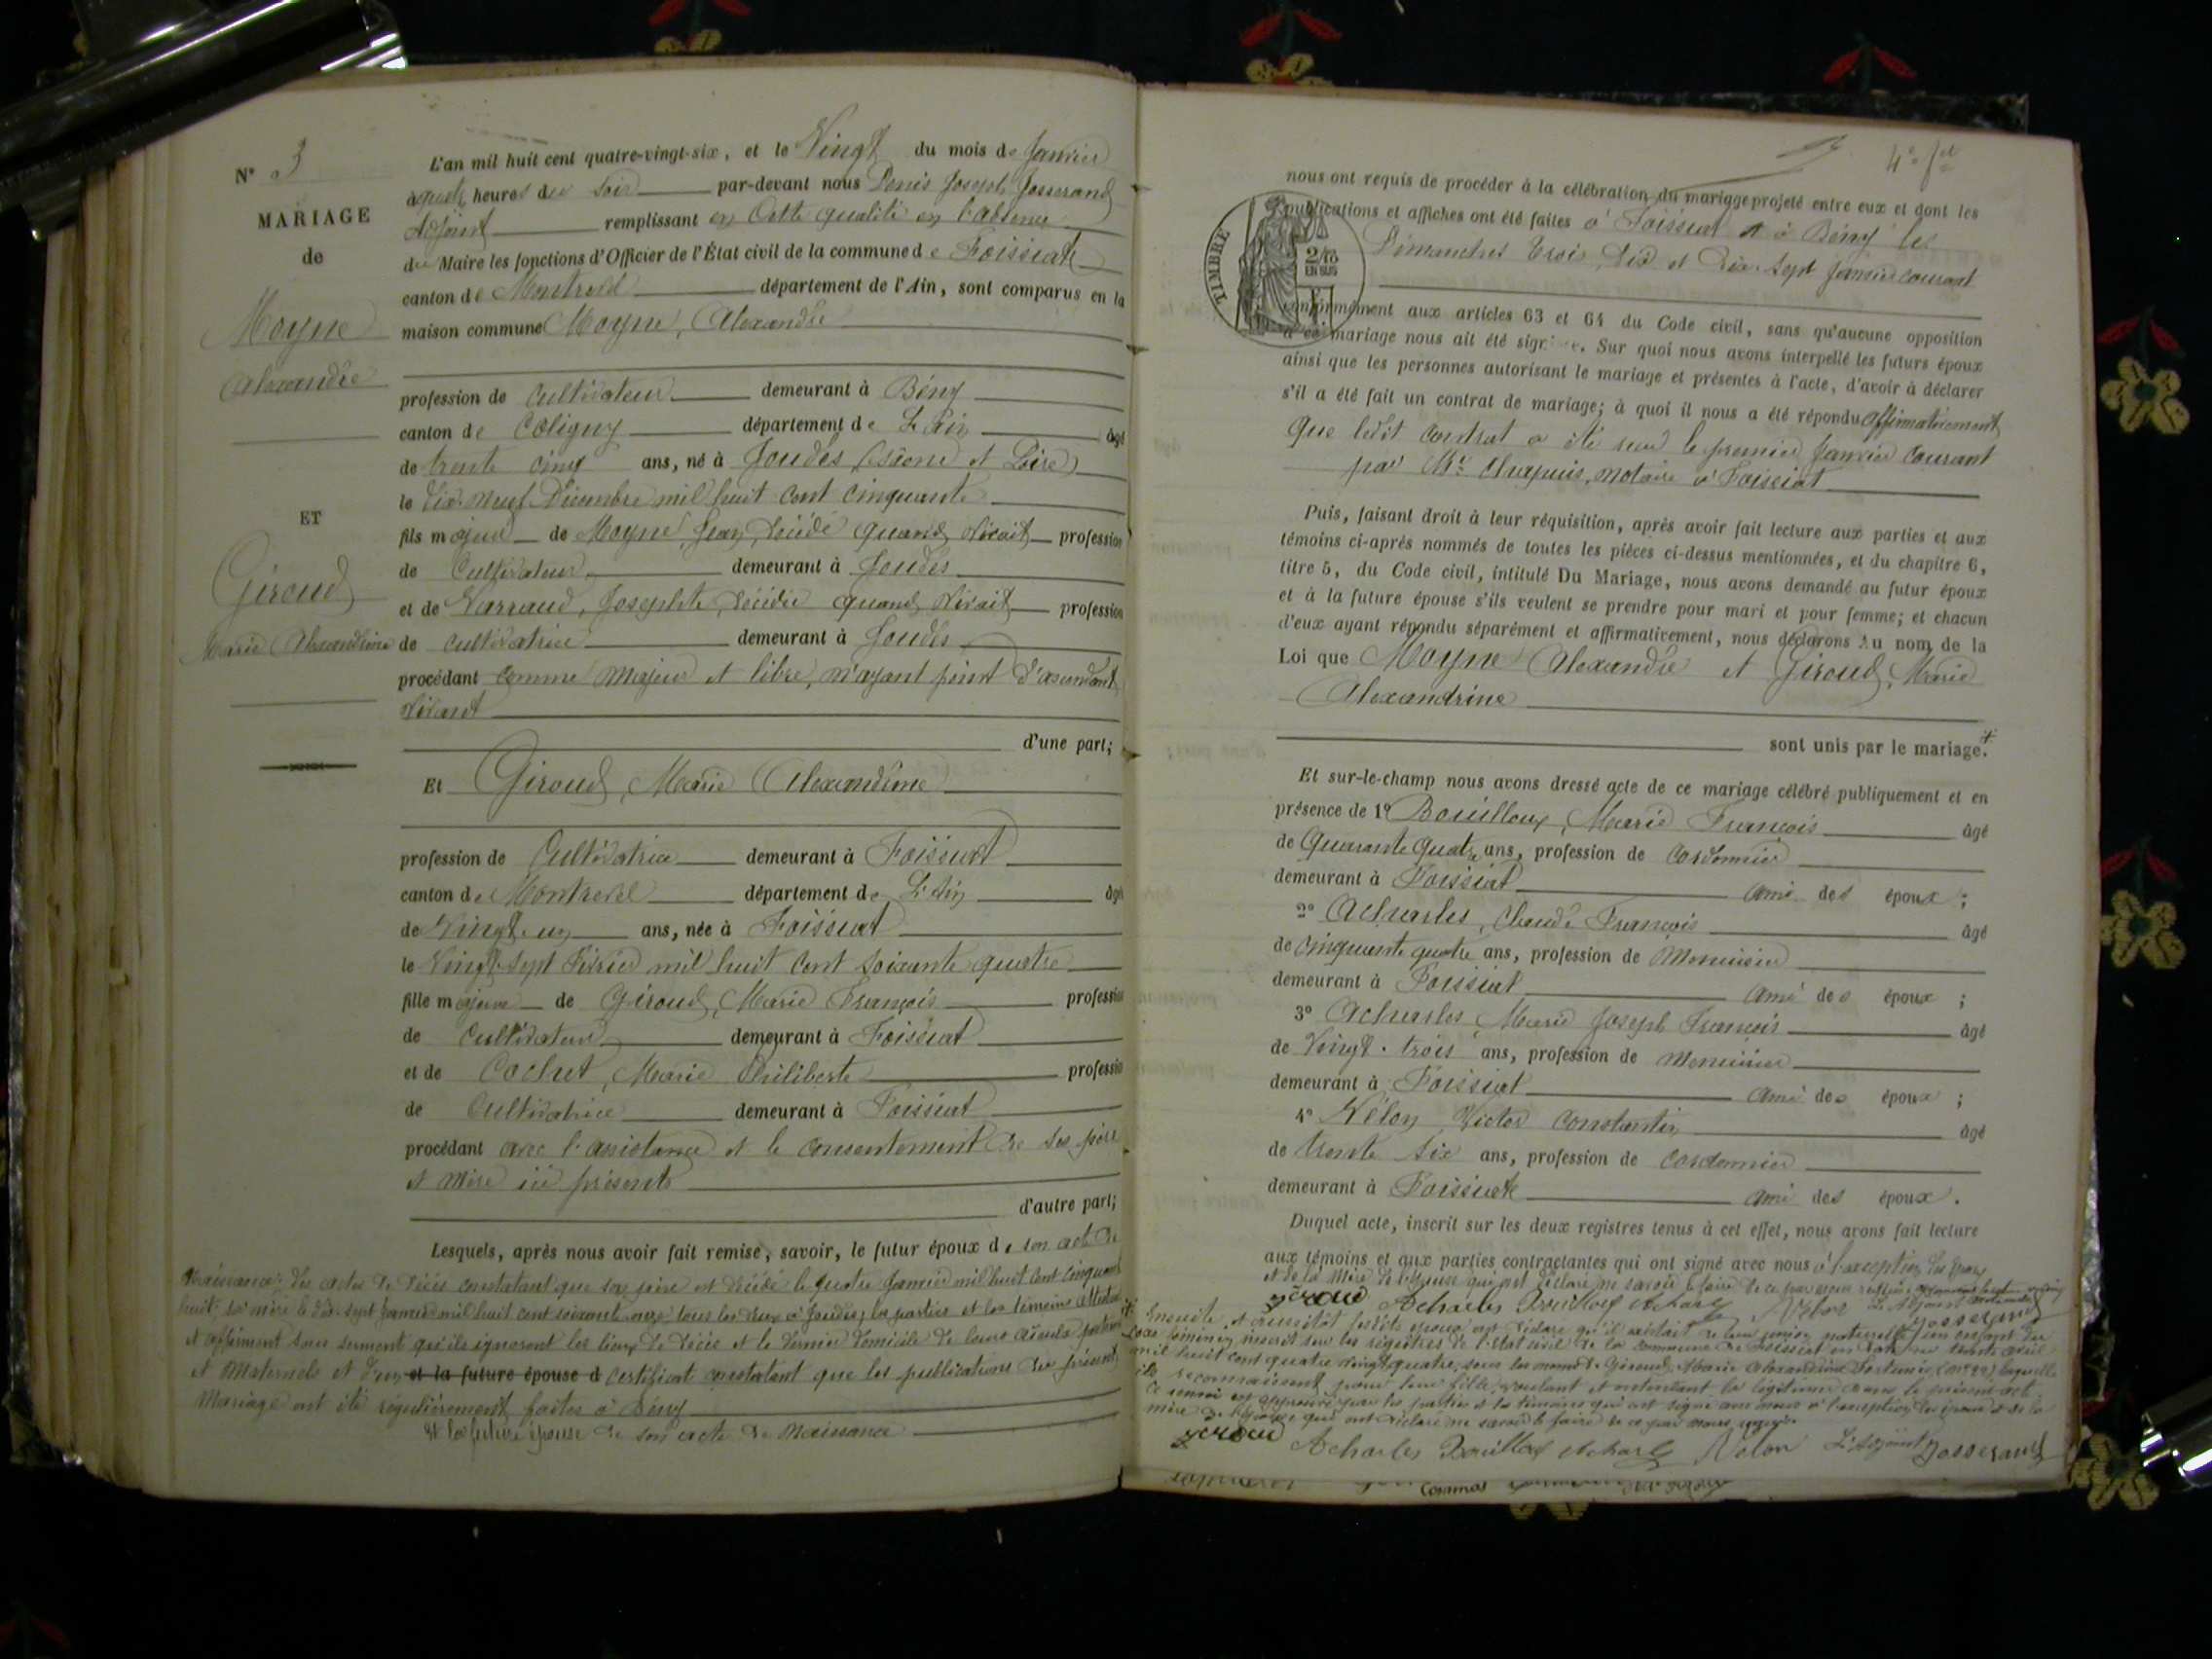 N° 3
MARIAGE
de
Moyne
Alexandre
ET
Giroud
Marie Alexandrine
L'an mil huit cent quatre-vingt-six, et le Vingt du mois de Janvier
à quatre heures du soir par-devant nous Denis Joseph Josserand
Adjoint remplissant en Cette qualité en l'absence
du Maire les fonctions d'Officier de l'État civil de la commune de Foissiat
canton de Montrevel département de l'Ain, sont comparus en la
maison commune Moyne, Alexandre
profession de Cultivateur demeurant à Bény
canton de Coligny département de L'Ain âgé
de trente cinq ans, né à Joudes (Saône et Loire)
le Dix-neuf Décembre mil huit cent cinquante
fils majeur de Moyne Jean, décédé quand vivait profession
de Cultivateur demeurant à Joudes
et de Varraud, Josephte, décédée quand vivait profession
de cultivatrice demeurant à Joudes
procédant comme majeur et libre, n'ayant point d'ascendant
vivant
d'une part;
Et Giroud, Marie Alexandrine
profession de Cultivatrice demeurant à Foissiat
canton de Montrevel département de L'Ain âgé
de Vingt-un ans, née à Foissiat
le Vingt-sept Février mil huit cent soixante quatre
fille majeure de Giroud, Marie François profession
de Cultivateur demeurant à Foissiat
et de Cochet, Marie Philiberte profession
de Cultivatrice demeurant à Foissiat
procédant avec l'assistance et le consentement de ses père
et mère ici présents
d'autre part;
Lesquels, après nous avoir fait remise, savoir, le futur époux de son acte de
naissance; des actes de décès constatant que son père est décédé le quatre Janvier mil huit cent cinquante
huit, sa mère le dix-sept Janvier mil huit cent soixante onze tous les deux à Joudes; les parties et les témoins attestant
et affirment sous serment qu'ils ignorent les lieux de décès et le dernier domicile de leurs aïeuls paternels
et maternels et d'un et la future épouse d certificat constatant que les publications du présent
Mariage ont été régulièrement faites à Bény
et la future épouse de son acte de naissance
4e fet
TIMBRE
2/10
EN SUS
nous ont requis de procéder à la célébration du mariage projeté entre eux et dont les
publications et affiches ont été faites à Foissiat et à Bény les
Dimanches trois, dix et dix-sept janvier courant
conformément aux articles 63 et 64 du Code civil, sans qu'aucune opposition
à ce mariage nous ait été signifiée. Sur quoi nous avons interpellé les futurs époux
ainsi que les personnes autorisant le mariage et présentes à l'acte, d'avoir à déclarer
s'il a été fait un contrat de mariage; à quoi il nous a été répondu affirmativement
Que ledit contrat a été reçu le premier janvier courant
par Me Chapuis, notaire à Foissiat
Puis, faisant droit à leur réquisition, après avoir fait lecture aux parties et aux
témoins ci-après nommés de toutes les pièces ci-dessus mentionnées, et du chapitre 6,
titre 5, du Code civil, intitulé Du Mariage, nous avons demandé au futur époux
et à la future épouse s'ils veulent se prendre pour mari et pour femme; et chacun
d'eux ayant répondu séparément et affirmativement, nous déclarons Au nom de la
Loi que Moyne Alexandre et Giroud, Marie
Alexandrine
sont unis par le mariage. +
Et sur-le-champ nous avons dressé acte de ce mariage célébré publiquement et en
présence de 1° Bouilloux, Marie François âgé
de Quarante Quatre ans, profession de cordonnier
demeurant à Foissiat ami des époux ;
2° Acharles, Claude François âgé
de cinquante quatre ans, profession de Menuisier
demeurant à Foissiat ami des époux ;
3° Acharles Marie Joseph François âgé
de Vingt-trois ans, profession de Menuisier
demeurant à Foissiat ami des époux ;
4° Nélon Victor Constantin âgé
de trente six ans, profession de cordonnier
demeurant à Foissiat ami des époux.
Duquel acte, inscrit sur les deux registres tenus à cet effet, nous avons fait lecture
aux témoins et aux parties contractantes qui ont signé avec nous à l'exception des époux
et de la mère de l'épouse qui ont déclaré ne savoir le faire de ce par nous requis
giroud Acharles Bouilloux Acharles Nélon L'Adjoint Josserand
Ensuite et aussitôt lesdits époux ont déclaré qu'il existait de leur union naturelle un enfant du
sexe féminin inscrit sur les registres de l'état civil de la commune de Foissiat en date du trente avril
mil huit cent quatre vingt quatre, sous les noms de Giroud, Marie Alexandrine laquelle
ils reconnaissent pour leur fille, voulant et entendant la légitimer dans le présent acte
ce renvoi est approuvé par les parties et les témoins qui ont signé avec nous à l'exception des époux et de la
mère de l'épouse qui ont déclaré ne savoir le faire de ce par nous requis
giroud Acharles Bouilloux Acharles Nelon L'Adjoint Josserand